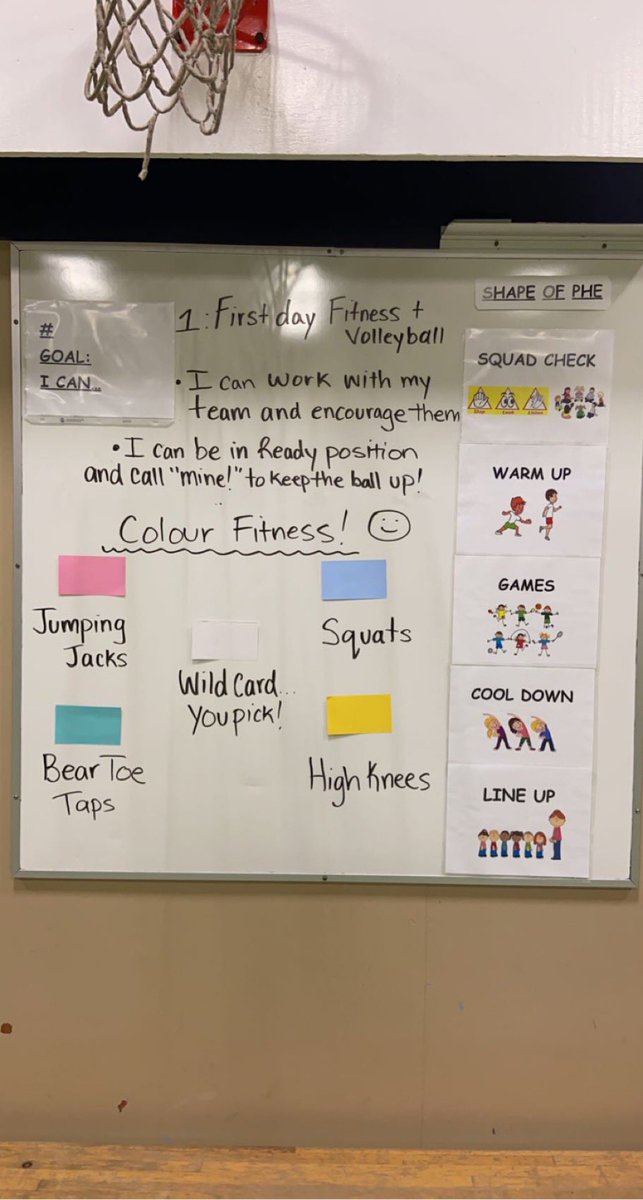 #
GOAL:
I CAN...
1: First day Fitness +
Volleyball
• I can work with my
team and encourage them
• I can be in Ready position
and call "mine!" to keep the ball up!
Colour Fitness!
Jumping
Jacks
Squats
Wild Card...
You pick!
Bear Toe
Taps
High Knees
SHAPE OF PHE
SQUAD CHECK
Stop
Look
Listen
WARM UP
GAMES
COOL DOWN
LINE UP